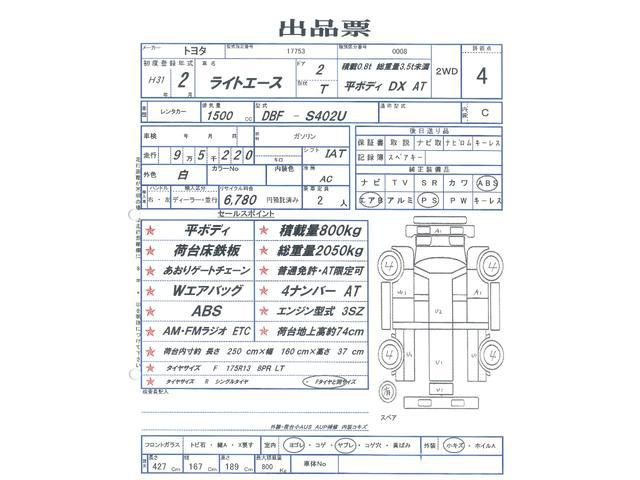 出品票
メーカー トヨタ 型式指定番号 17753 種別区分番号 0008 評価点
初度登録年式 車名 ドア 2 積載0.8t 総重量3.5t未満 2WD 4
H31 年 2 月 ライトエース 形状 T 平ボディ DX AT
車歴 レンタカー 排気量 1500 CC 型式 DBF - S402U 通称型式 内装 C
車検 年 月 年 月 燃料 ガソリン 後日送り品
走行 9万5千220 キロ シフト IAT 保証書 取説 ナビ取 ナビロム キーレス
記録簿 スペアキー
外色 白 カラーNo 内装色 冷房 AC 純正装備品
ナビ TV SR カワ ABS
ハンドル 右・左 輸入区分 ディーラー・並行 リサイクル料金 6,780 円預託済み 乗車定員 2 人 エアB アルミ PS PW キーレス
セールスポイント
★ 平ボディ ★ 積載量800kg
★ 荷台床鉄板 ★ 総重量2050kg
★ あおりゲートチェーン ★ 普通免許・AT限定可
★ Wエアバッグ ★ 4ナンバー AT
★ ABS ★ エンジン型式 3SZ
★ AM・FMラジオ ETC ★ 荷台地上高約74cm
★ 荷台内寸約 長さ 250 cm×幅 160 cm×高さ 37 cm
★ タイヤサイズ F 175R13 8PR LT
★ タイヤサイズ R シングルタイヤ Fタイヤと同サイズ
検査員記入
外装・荷台小AUS AUP補修 内装コキズ
スペア
フロントガラス トビ石・線A・X要す 室内 ヨゴレ・コゲ・ヤブレ・コゲ穴・黄ばみ 外装 小キズ・ホイルA
長さ 427 Cm 幅 167 Cm 高さ 189 Cm 最大積載量 800 Kg 車体No
A1
4 4
U1 U1
U2
4 4
U1